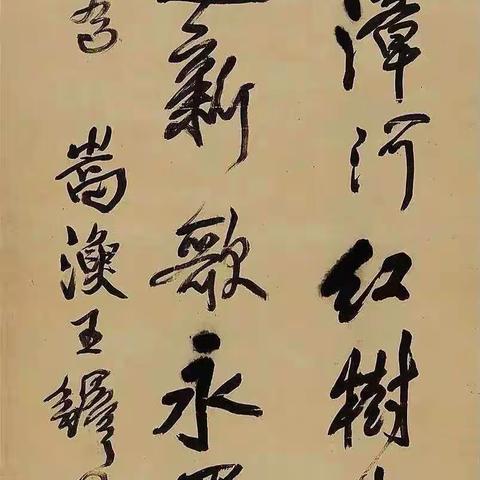 漳河紅樹
新歌永
嵩漁王鐸